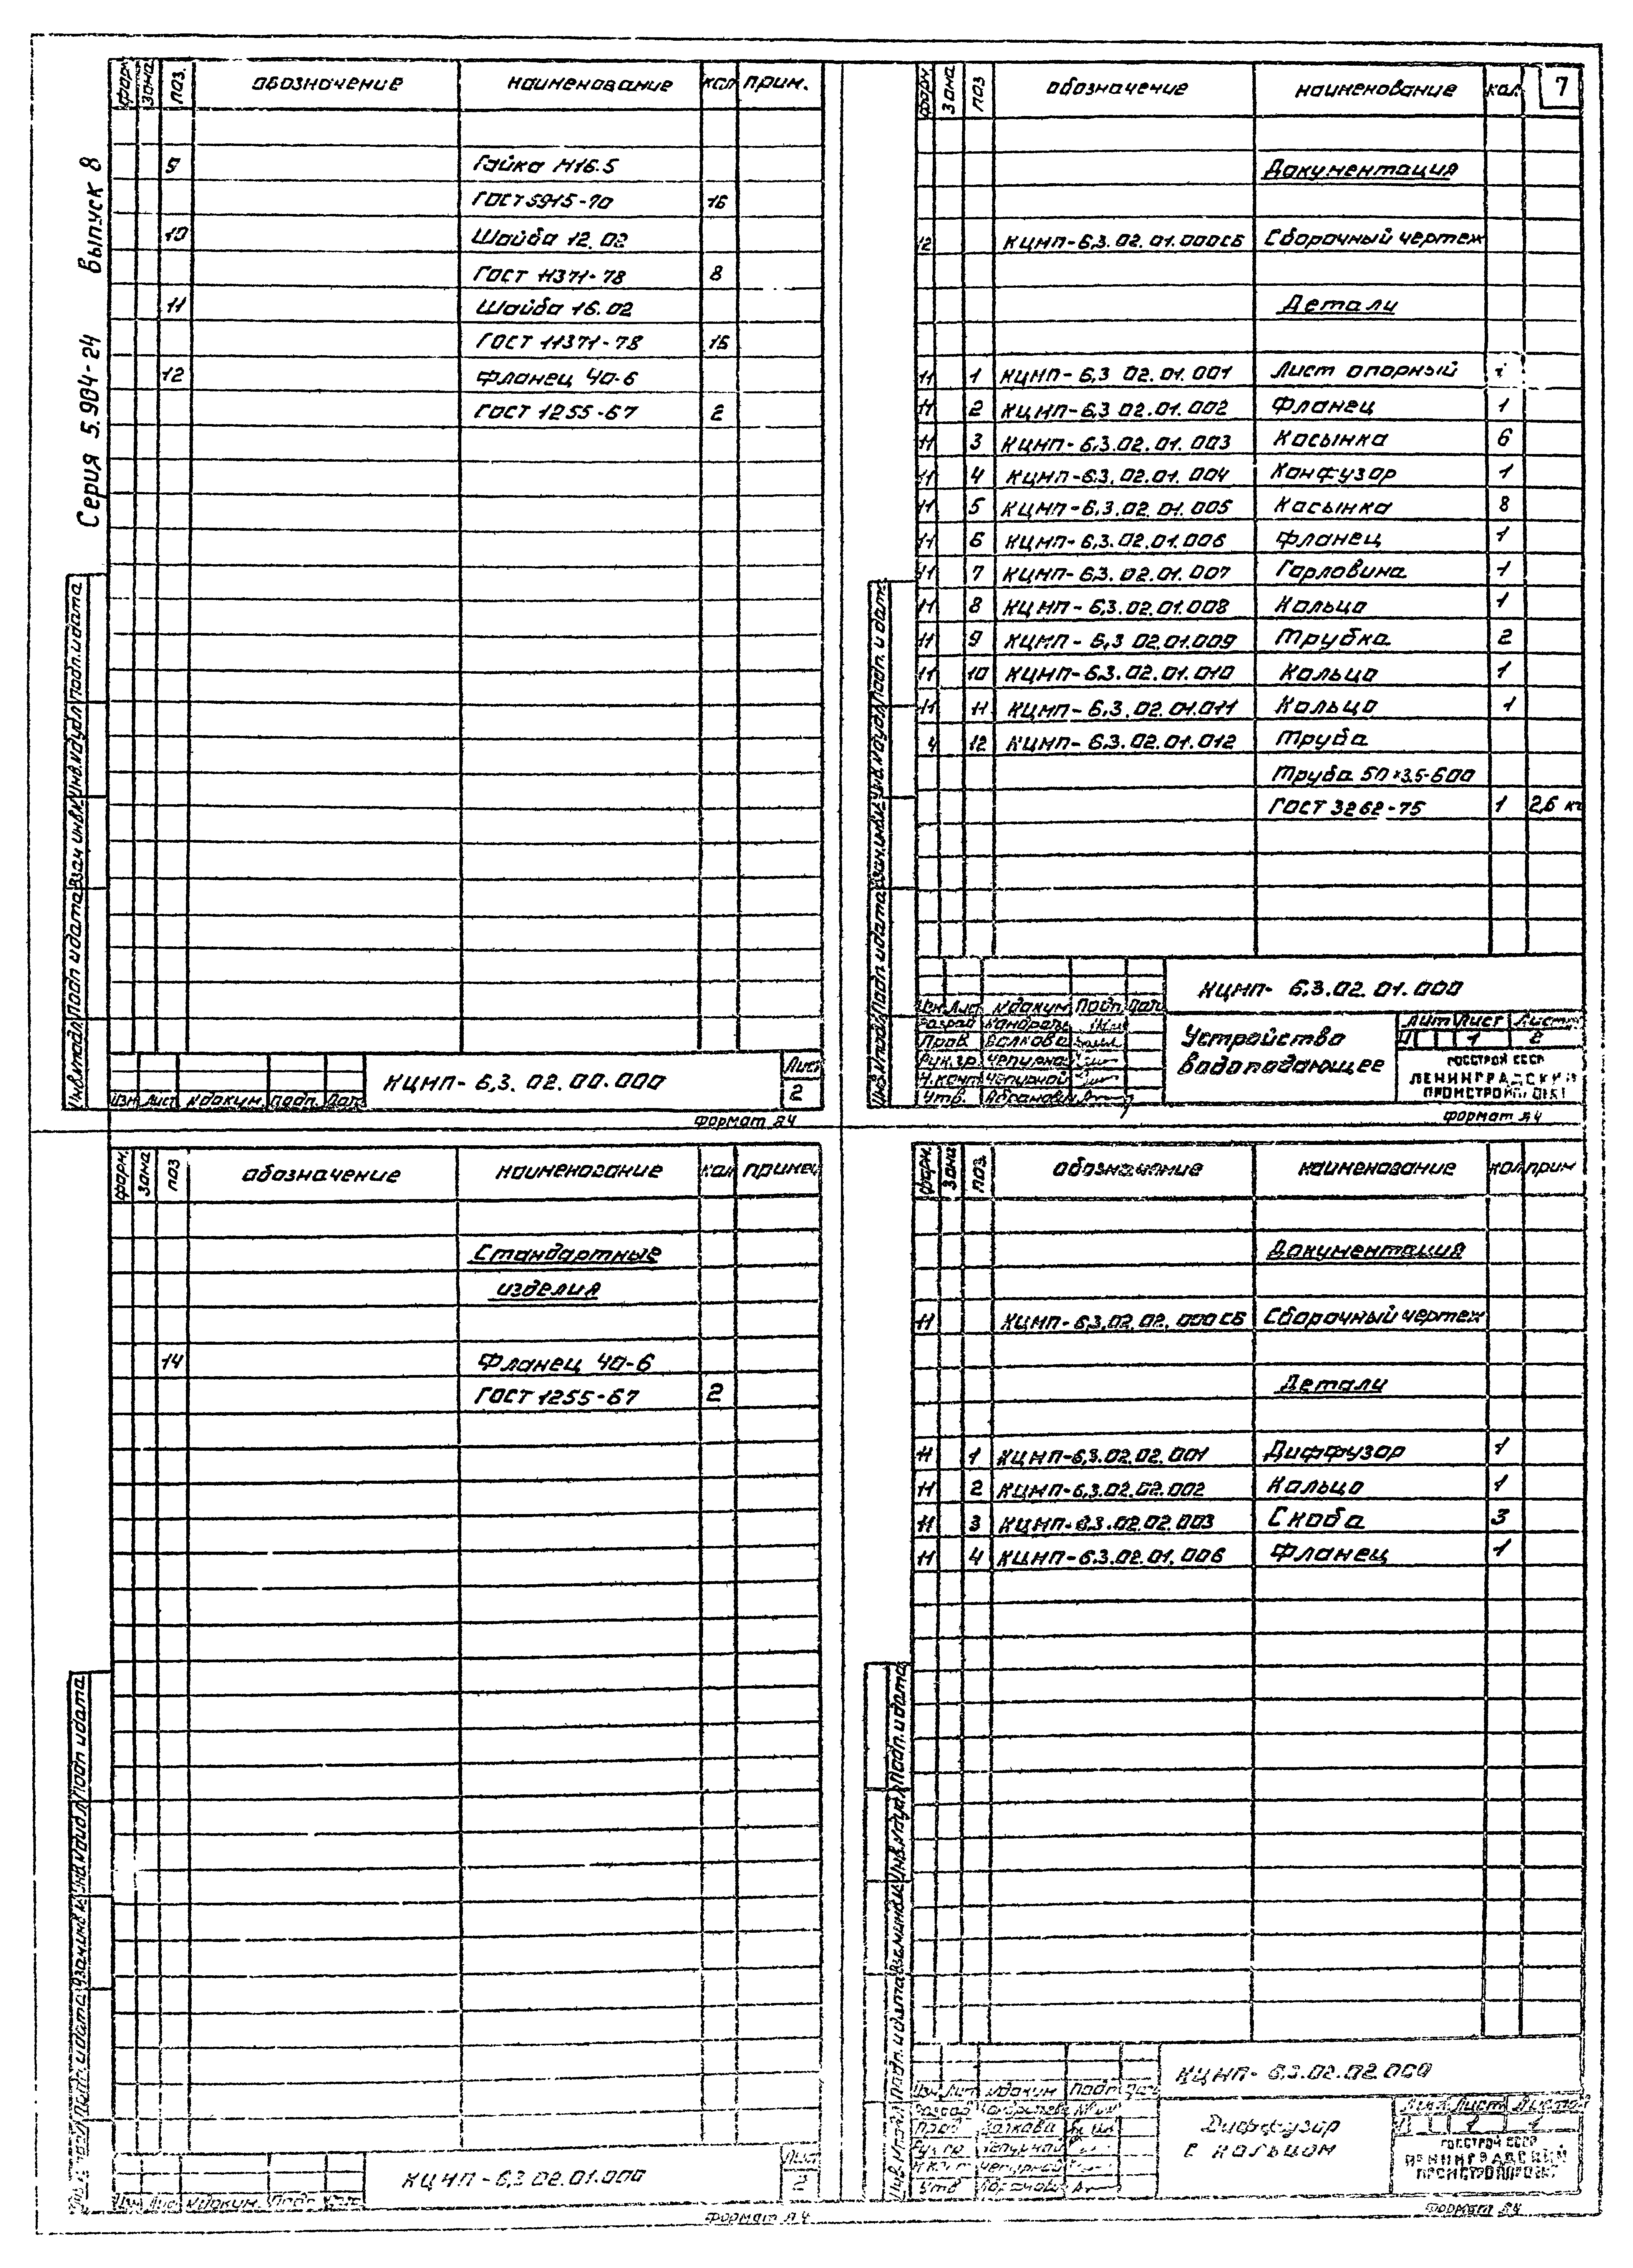 Серия 5.904-24 Выпуск 8
форм. зона поз. обозначение наименование кол прим.
9 Гайка М16.5
ГОСТ 5915-70 16
10 Шайба 12.02
ГОСТ 11371-78 8
11 Шайба 16.02
ГОСТ 11371-78 16
12 Фланец 40-6
ГОСТ 1255-67 2
Инв.№подл Подп и дата Взам инв.№ Инв.№дубл Подп. и дата
Изм Лист №докум. подп. Дата
КЦНП-6,3.02.00.000
Лист
2
Формат А4
форм. зона поз обозначение наименование кол. 7
Документация
12 КЦНП-6,3.02.01.000СБ Сборочный чертеж
Детали
11 1 КЦНП-6,3 02.01.001 Лист опорный 1
11 2 КЦНП-6,3 02.01.002 Фланец 1
11 3 КЦНП-6,3.02.01.003 Косынка 6
11 4 КЦНП-6.3.02.01.004 Конфузор 1
11 5 КЦНП-6,3.02.01.005 Косынка 8
11 6 КЦНП-6,3.02.01.006 Фланец 1
11 7 КЦНП-6,3.02.01.007 Горловина 1
11 8 КЦНП-6,3.02.01.008 Кольцо 1
11 9 КЦНП-6,3 02.01.009 Трубка 2
11 10 КЦНП-6,3.02.01.010 Кольцо 1
11 11 КЦНП-6,3.02.01.011 Кольцо 1
4 12 КЦНП-6,3.02.01.012 Труба
Труба 50×3,5-600
ГОСТ 3262-75 1 2,6 кг
Инв.№подл Подп. и дата Взам.инв№ Инв.№дубл Подп. и дата
КЦНП-6,3.02.01.000
Изм Лист №докум Подп Дата
Пров Волкова
Рук.гр. Чепурной
Н.конт Чепурной
Утв.
Устройство
водоподающее
Лит Лист Листов
1 2
ГОССТРОЙ СССР
ЛЕНИНГРАДСКИЙ
ПРОМСТРОЙПРОЕКТ
Формат А4
форм. зона поз обозначение наименование кол примеч
Стандартные
изделия
14 Фланец 40-6
ГОСТ 1255-67 2
Подп. и дата Взам инв № Подп и дата
Изм Лист №докум. Подп Дата
КЦНП-6,3 02.01.000
Лист
2
Формат А4
форм. зона поз. обозначение наименование кол прим
Документация
11 КЦНП-6,3.02.02.000СБ Сборочный чертеж
Детали
11 1 КЦНП-6,3.02.02.001 Диффузор 1
11 2 КЦНП-6,3.02.02.002 Кольцо 1
11 3 КЦНП-6,3.02.02.003 Скоба 3
11 4 КЦНП-6,3.02.01.006 Фланец 1
Подп. и дата Взам инв № Инв.№дубл Подп. и дата
КЦНП-6,3.02.02.000
Изм Лист №докум Подп Дата
Пров Волкова
Рук гр. Чепурной
Чепурной
Утв
Диффузор
с кольцом
Лит Лист Листов
1 1
ГОССТРОЙ СССР
ЛЕНИНГРАДСКИЙ
ПРОМСТРОЙПРОЕКТ
Формат А4